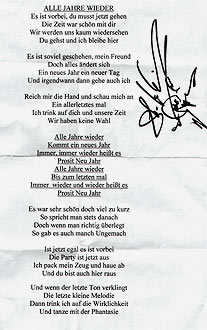 ALLE JAHRE WIEDER
Es ist vorbei, du musst jetzt gehen
Die Zeit war schön mit dir
Wir werden uns kaum wiedersehen
Du gehst und ich bleibe hier
Es ist soviel geschehen, mein Freund
Doch alles ändert sich
Ein neues Jahr ein neuer Tag
Und irgendwann dann gehe auch ich
Reich mir die Hand und schau mich an
Ein allerletztes mal
Ich trink auf dich und unsere Zeit
Wir haben keine Wahl
Alle Jahre wieder
Kommt ein neues Jahr
Immer, immer wieder heißt es
Prosit Neu Jahr
Alle Jahre wieder
Bis zum letzten mal
Immer wieder und wieder heißt es
Prosit Neu Jahr
Es war sehr schön doch viel zu kurz
So spricht man stets danach
Doch wenn man richtig überlegt
So gab es auch manch Ungemach
Ist jetzt egal es ist vorbei
Die Party ist jetzt aus
Ich pack mein Zeug und haue ab
Und du bist auch hier raus
Und wenn der letzte Ton verklingt
Die letzte kleine Melodie
Dann trink ich auf die Wirklichkeit
Und tanze mit der Phantasie